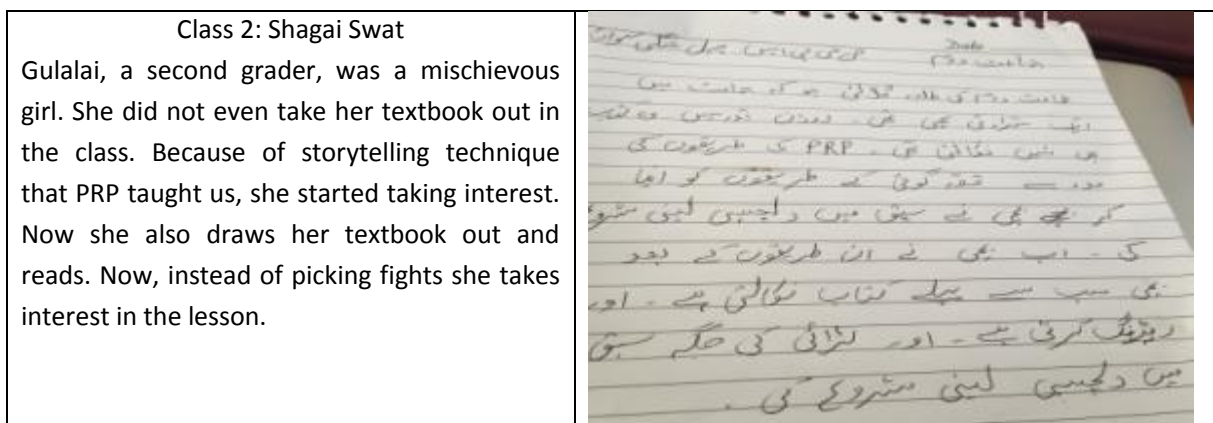 Class 2: Shagai Swat
Gulalai, a second grader, was a mischievous
girl. She did not even take her textbook out in
the class. Because of storytelling technique
that PRP taught us, she started taking interest.
Now she also draws her textbook out and
reads. Now, instead of picking fights she takes
interest in the lesson.
Date
جماعت دوم
جماعت دوم کی طالبہ گلالئی جو کہ جماعت میں
ایک شرارتی بچی تھی۔ وہ کتاب
ہی نہیں نکالتی تھی۔ PRP کے طریقوں کی
قصہ گوئی کے طریقوں کو اپنا
کر بچی نے سبق میں دلچسپی لینی شروع
کی۔ اب بچی نے ان طریقوں کے بعد
بھی سب سے پہلے کتاب نکالتی ہے۔ اور
ریڈنگ کرتی ہے۔ اور لڑائی کی جگہ سبق
میں دلچسپی لینی شروع کی۔